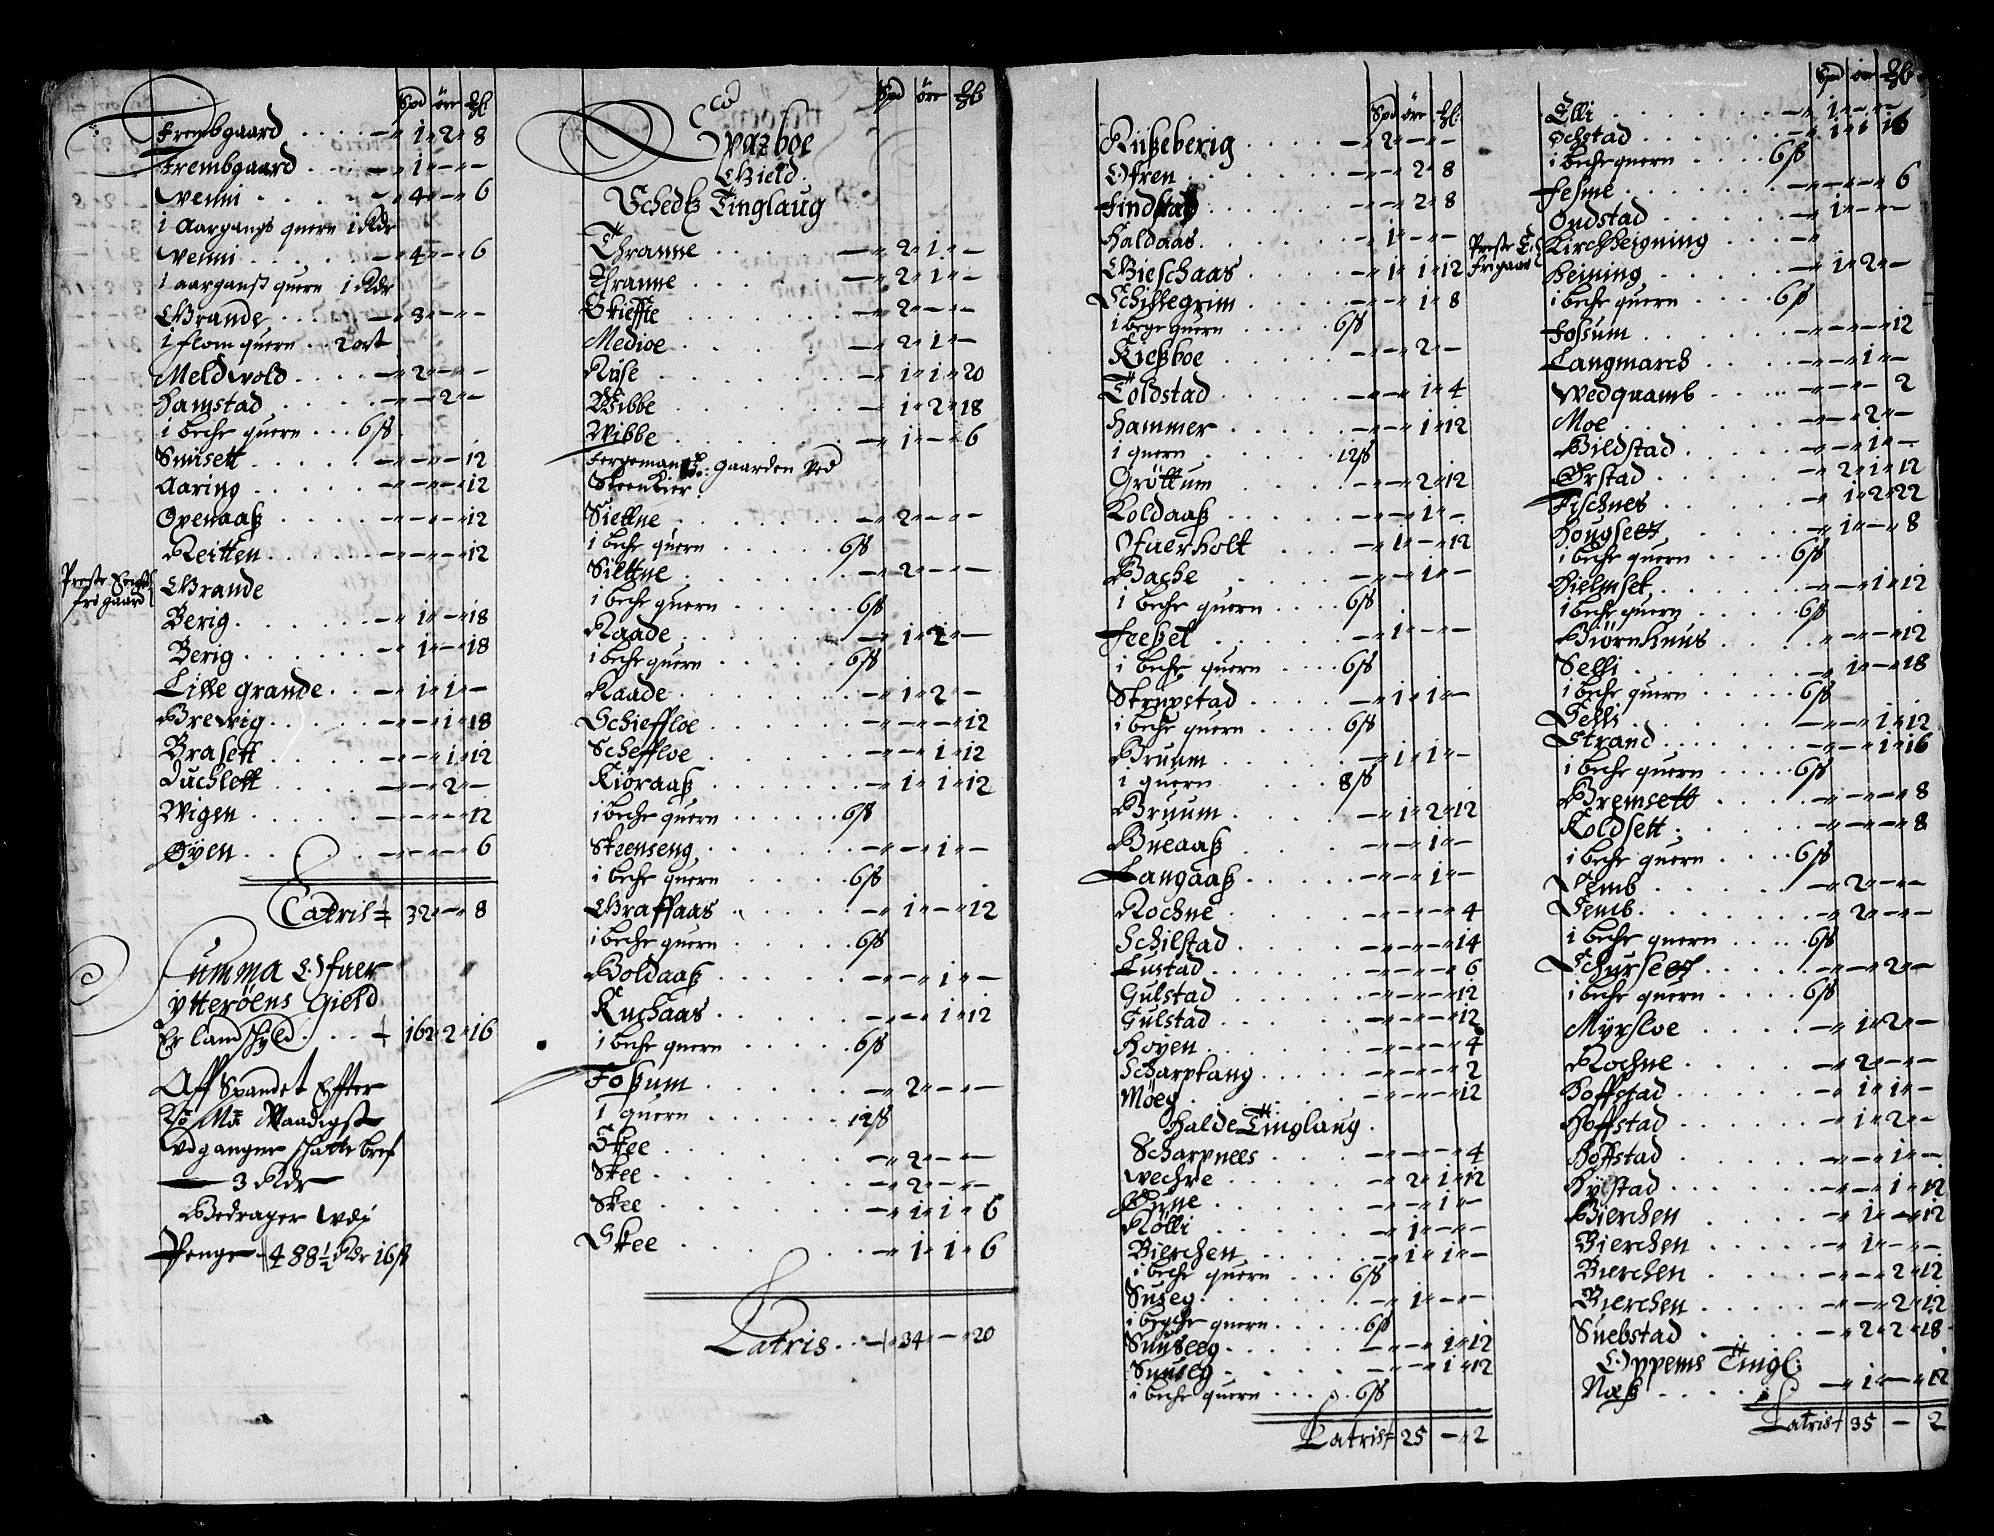 Spd ore
Frembgaard . . . . — 1 2 8
Frembgaard . . . — 1 — —
Venni . . . . — 4 — 6
i Aargangs quern 1 Rdr
Venni . . . . — 4 — 6
i aargangs quern 1 Rdr
Grande . . . — 3 — —
i flom quern . . 2 ort
Meldvold . . . . — 2 — —
Hamstad . . . . — — 2 —
i beche quern . . . 6 ß
Smisett . . . . — — — 12
Aaring . . . . — — — 12
Openaaß . . . . — — — 12
Reitten . . . . — — — 12
Grande
Berig . . . . — 1 — 18
Berig . . . . — 1 — 18
Lille grande . . . — 1 1 —
Brevig . . . . — — 1 18
Brasett . . . . — — 1 12
Duchlett . . . . — — 2 —
Wigen . . . . — — — 12
Øyen . . . . — — — 6
Latris 32 — 8
Summa Ofuer
Ytterøens Gield
Er landschyld . . 162 2 16
Aff Spandet Effter
Ko: Ma: Naadigst
Udgangne schatte bref
— 3 Rdr —
Bedrager udi
Penge — 488 ½ Rdr 16 ß
Sparboe
Gield.
Schedtz Tinglaug
Spd øre
Thranne . . . . — 2 1 —
Thranne . . . . — 2 1 —
Skieffte . . . . — 2 — —
Medioe . . . . — 2 1 —
Ruse . . . . — 1 1 20
Wibbe . . . . — 1 2 18
Wibbe . . . . — 1 — 6
Fergemands gaarden Ved
Steenkier.
Siellne . . . . — 2 — —
i beche quern . . . . 6 ß
Siellne . . . . — 2 — —
i beche quern . . . . 6 ß
Raade . . . . — 1 2 —
i beche quern . . . . 6 ß
Raade . . . . — 1 2 —
Schieffloe . . . . — — — 12
Scheffloe . . . . — — 1 12
Kiøraaß . . . . — 1 1 12
i beche quern . . . . 6 ß
Steenseng . . . . — — 1 —
i beche quern . . . . 6 ß
Graffaas . . . . — 1 — 12
i beche quern . . . . 6 ß
Boldaaß . . . . — — 1 —
Kuchaas . . . . — — 1 12
i beche quern . . . . 6 ß
Foßum . . . . — 2 — —
i quern . . . . 12 ß
Skee . . . . — 2 — —
Skee . . . . — 2 — —
Skee . . . . — 1 1 6
Skee . . . . — 1 1 6
Latris . . 34 — 20
Spd øre
Rußeberig . . . . — 2 — —
Ofren . . . . — — 2 8
— — 2 8
Haldaas . . . . — 1 — —
Gieschaas . . . . — 1 1 12
Schillegrim . . . . — — 1 8
i bege quern . . . . 6 ß
Kießboe . . . . — — 2 —
Toldstad . . . . — — 1 4
Hammer . . . . — — 1 12
i quern . . . . 12 ß
Grøttum . . . . — — 2 12
Roldaaß . . . . — — 1 —
Ofuerholt . . . . — 1 — 12
Bache . . . . — — 1 —
i beche quern . . . . 6 ß
. . . . — 1 — —
i beche quern . . . . 6 ß
Strupstad . . . . — 1 1 —
i beche quern . . . . 6 ß
Bruum . . . . — 1 1 —
i quern . . . . 8 ß
Bruum . . . . — 1 2 12
Bueaaß . . . . — — 1 —
Langaaß . . . . — — 1 —
Rochne . . . . — — — 4
Schilstad . . . . — — — 14
Lustad . . . . — — — 6
Gulstad . . . . — — — 12
Gulstad . . . . — — — 12
Høyen . . . . — — — 4
Scharptang . . . . — — — 2
Møeg . . . . — — — 12
Halde Tinglaug.
Scharpnees . . . — — — 4
Vechre . . . . — 2 1 12
— — 1 —
Rølli . . . . — 1 — —
Bierchen . . . . — 1 1 —
i beche quern . . . 6 ß
Suseg . . . . — 1 — —
i begche quern . . . 6 ß
Sunseeg . . . . — — 1 12
Sunseg . . . . — — 1 12
i beche quern . . . . 6 ß
Latris 25 — 2
Spd ore
Elli . . . . — 1 — —
Ochstad . . . . — 1 1 16
i beche quern . . . . 6 ß
Fesme . . . . — — — 6
Ondstad . . . . — 1 — —
Kirchheigning . . . . —
Heining . . . . — 1 2 —
i beche quern . . . . 6 ß
Foßum . . . . — — — 12
Langmarch . . . . — — 1 —
Wedquamb . . . . — — — 2
Moe . . . . — — 2 —
Bildstad . . . . — — 1 —
Ørstad . . . . — 2 1 12
Fischnes . . . . — 1 2 22
Hougsett . . . . — 1 — 8
i beche quern . . . . 6 ß
Hielmset . . . . — — 1 12
i beche quern . . . . 6 ß
Biørnhuus . . . . — — — 12
Selli . . . . — 1 — 18
i beche quern . . . . 6 ß
Selli . . . . — — 1 12
Strand . . . . — — 1 16
i beche quern . . . . 6 ß
Bremsett . . . . — — — 8
Koldsett . . . . — — — 8
i beche quern . . . . 6 ß
Semb . . . . — 2 — —
Semb . . . . — 2 — —
i beche quern . . . . 6 ß
Schursett . . . . — — 2 —
i beche quern . . . . 6 ß
Myrsloe . . . . — 1 2 —
Rochne . . . . — 2 — —
Hoffstad . . . . — 1 1 —
Hoffstad . . . . — 1 2 —
Hoffstad . . . . — — 1 —
Hystad . . . . — — 1 12
Bierchen . . . . — 1 — 12
Bierchen . . . . — 1 — —
Bierchen . . . . — — 2 12
Bierchen . . . . — — 2 12
Suebstad . . . . — 2 2 18
Oppems Tingl:
Næß . . . . — 1 — 12
Latris 35 — 2